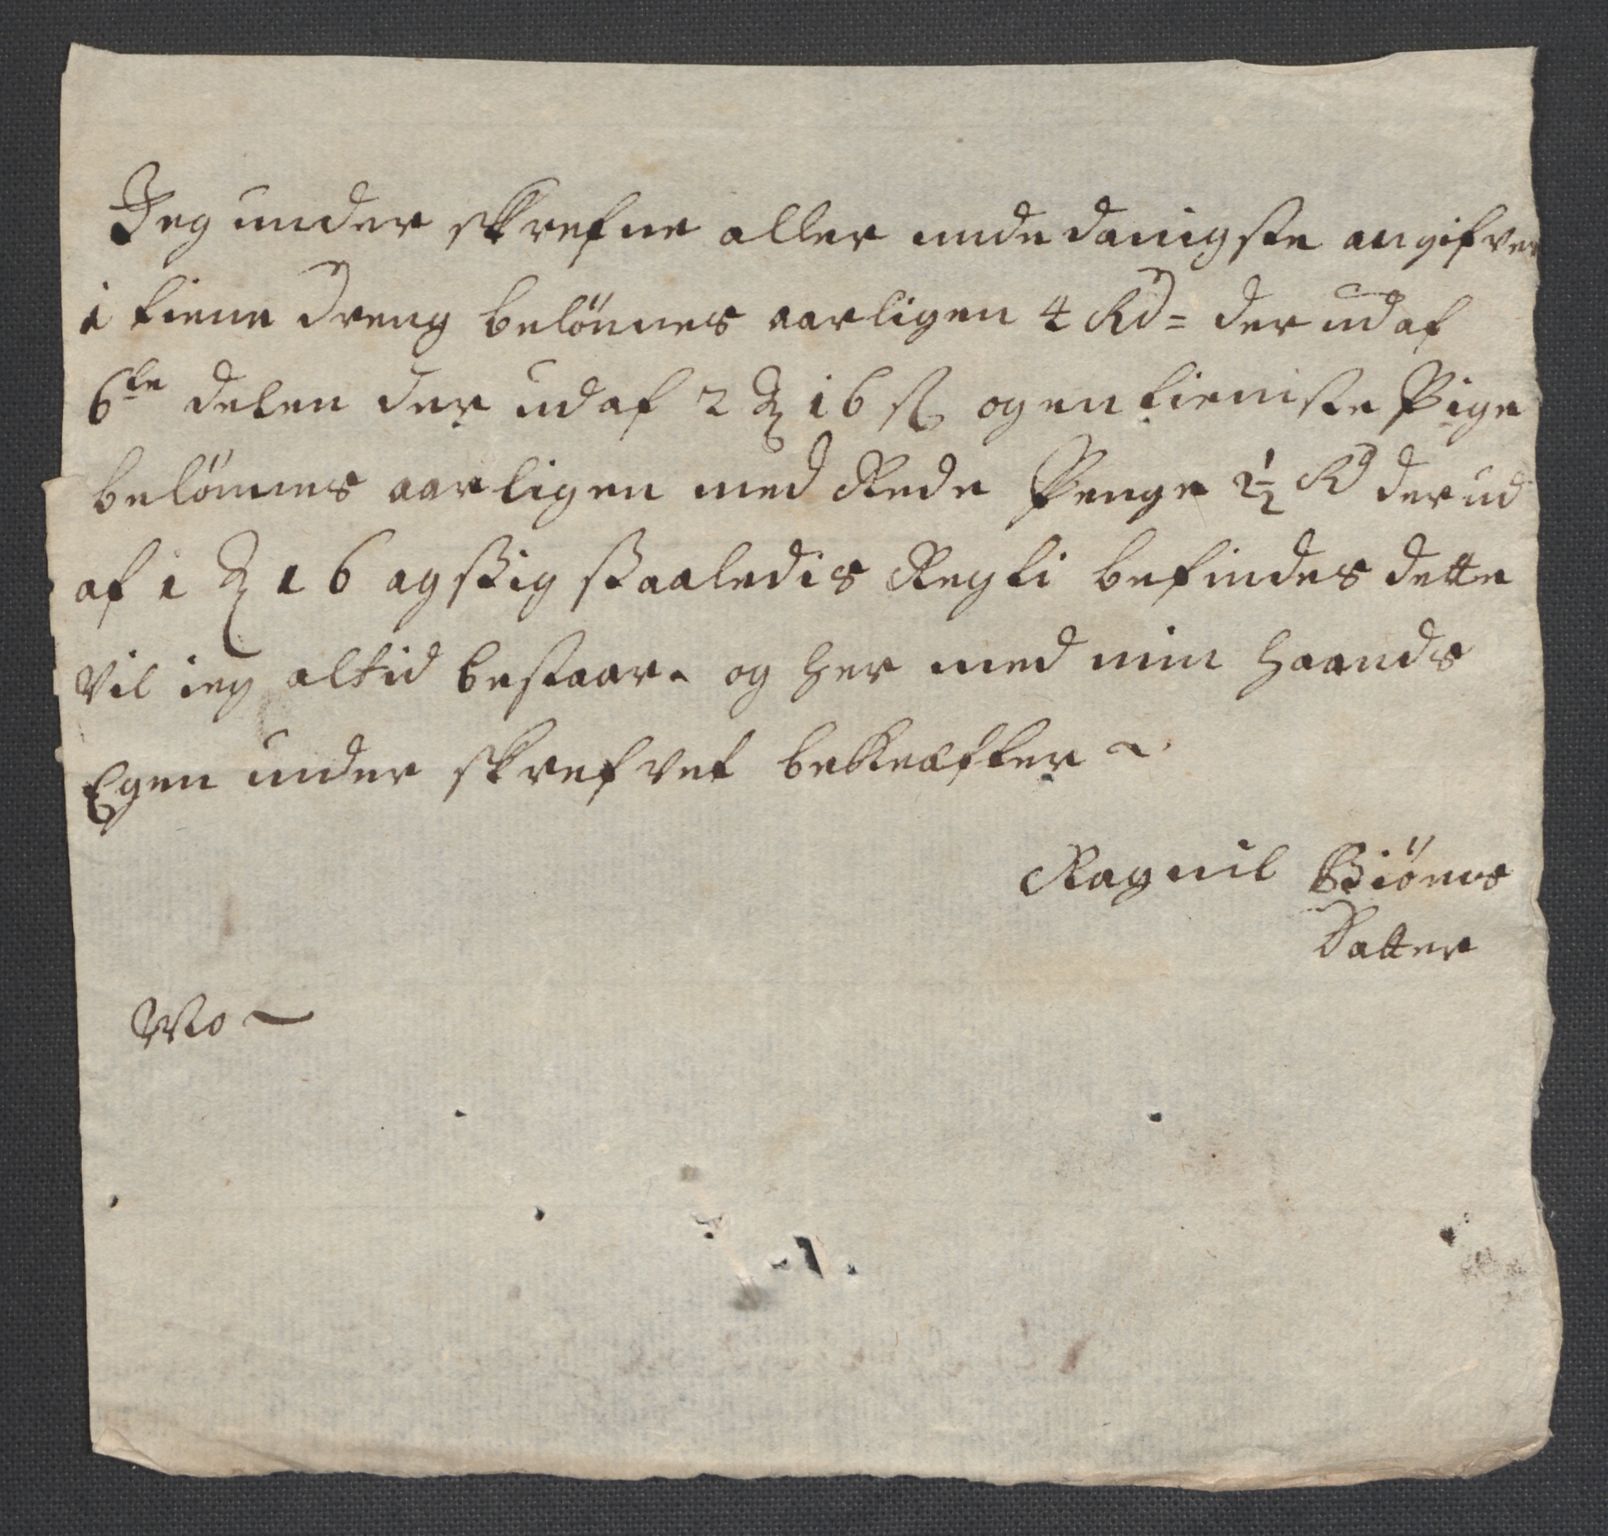 Jeg under skrefne aller unde danigste angifver
1 tiene dreng belönnes aarligen 4 Rd= der ud af
6te delen der ud af 2 ℳ 16 ß og en tieniste Pige
belönnes aarligen med Rede Penge 2½ Rd der ud
af 1 ℳ 16 agstig staaledis Regti befindes dette
Vil ieg altid bestaar. og her med min haands
Egen under skrefvet bekræfter
Ragnil Biörns
Datter
Mo